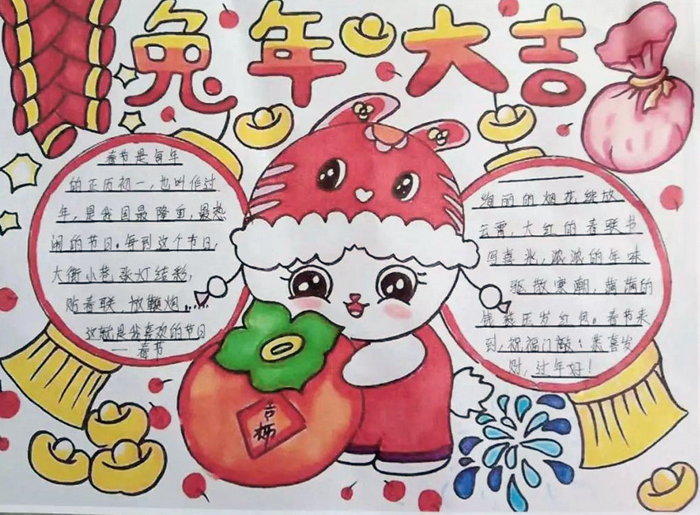 兔年大吉
春节是每年
的正历初一，也叫作过
年，是我国最隆重，最热
闹的节日。每到这个节日，
大街小巷张灯结彩，
贴春联，放鞭炮...
这就是我喜欢的节日
——春节
绚丽的烟花绽放
云霄，大红的春联书
写喜兆，浓浓的年味
驱散寒潮，满满的
钱袋压岁红包。春节来
到，祝福门敲：恭喜发
财，过年好！
吉
柿